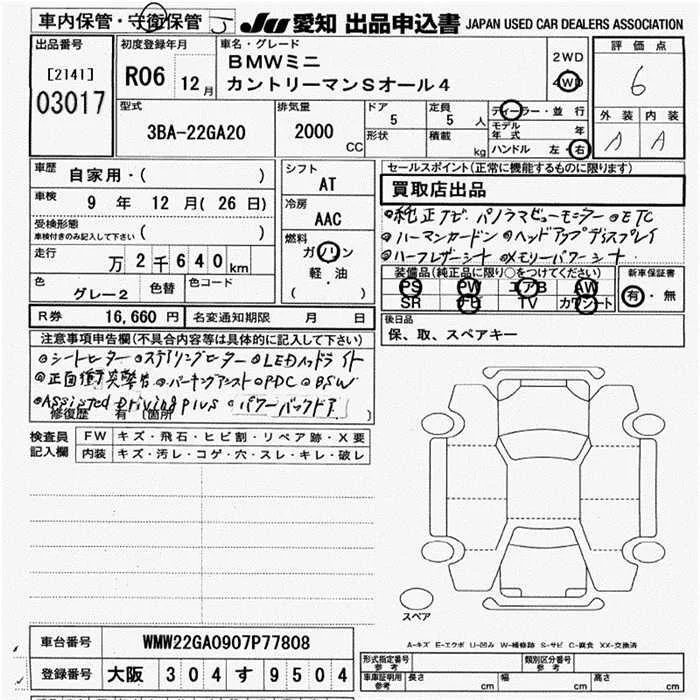 車内保管・守衛保管 JU 愛知 出品申込書 JAPAN USED CAR DEALERS ASSOCIATION
出品番号 [2141] 03017
初度登録年月 R06 12月
車名・グレード BMWミニ
カントリーマンSオール4
2WD
4WD
評価点 6
外装 A 内装 A
型式 3BA-22GA20
排気量 2000 CC
ドア 5 定員 5人
形状 積載 kg
ディーラー・並行
モデル年式 年
ハンドル 左・右
車歴 自家用・( )
車検 9年 12月(26日)
受検形態
車検付きのみ記入して下さい ( )
走行 万2千640km
色 グレー2 色替 色コード
シフト AT
冷房 AAC
燃料 ガソリン
軽・油
( )
セールスポイント(正常に機能するものに限ります)
買取店出品
◎純正ナビ パノラマビューモニター ◎ETC
◎ハーマンカードン ◎ヘッドアップディスプレイ
◎ハーフレザーシート ◎メモリーパワーシート
装備品(純正品に限り○をつけてください)
PS PW エアB AW
SR TV カワシート
新車保証書
有・無
R券 16,660円 名変通知期限 月 日
後日品
保、取、スペアキー
注意事項申告欄(不具合内容等は具体的に記入して下さい)
◎シートヒーター ◎ステアリングヒーター ◎LEDヘッドライト
◎正面衝突警告 ◎パーキングアシスト ◎PDC ◎BSW
◎Assisted Driving Plus ◎パワーバックドア
修復歴 有 (箇所
検査員記入欄
FW キズ・飛石・ヒビ割・リペア跡・X要
内装 キズ・汚レ・コゲ・穴・スレ・キレ・破レ
スペア
A-キズ E-エクボ U-凹み W-補修跡 S-サビ C-腐食 XX-交換済
車台番号 WMW22GA0907P77808
登録番号 大阪 304 す 9504
形式指定番号 参考 類別区分番号 参考
車庫証明用 参考 長さ cm 幅 cm 高さ cm